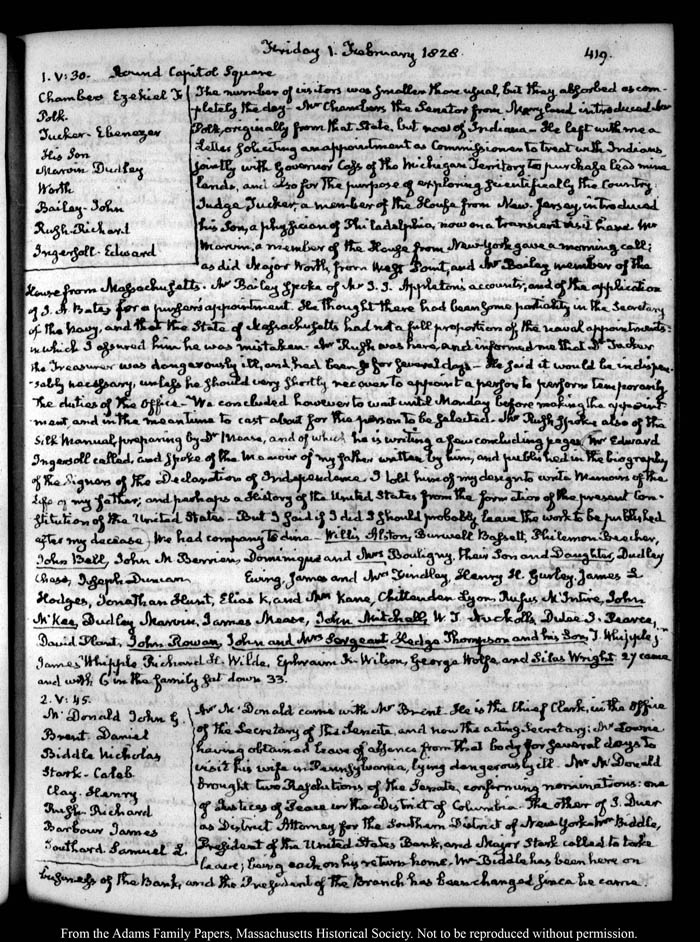 Friday 1. February 1828. 419.
1. V:30. Round Capitol Square
Chambers Ezekiel F.
Polk.
Tucker-Ebenezer
His Son
Marvin Dudley
Worth
Bailey-John
Rush-Richard
Ingersoll-Edward
The number of visitors was smaller than usual, but they absorbed as com-
pletely the day- Mr Chambers the Senator from Maryland introduced Mr
Polk, originally from that State, but now of Indiana- He left with me a
Letter soliciting an appointment as Commissioner to treat with Indians,
jointly with Governor Cass of the Michigan Territory to purchase lead mine
lands, and also for the purpose of exploring scientifically the Country.
Judge Tucker, a member of the House from New-Jersey, introduced
his Son, a physician of Philadelphia, now on a transient visit here. Mr
Marvin, a member of the House from New-York gave a morning call;
as did Major Worth, from West Point, and Mr Bailey member of the
House from Massachusetts. Mr Bailey spoke of Mr J. J. Appleton's accounts, and of the application
of J. A Bates for a purser's appointment. He thought there had been some partiality in the Secretary
of the Navy, and that the State of Massachusetts had not a full proportion of the naval appointments:
in which I assured him he was mistaken- Mr Rush was here, and informed me that Dr Tucker
the Treasurer was dangerously ill, and had been so for several days- He said it would be indispen-
sably necessary, unless he should very shortly recover to appoint a person to perform temporarily
the duties of the Office- We concluded however to wait until Monday before making the appoint-
ment and in the meantime to cast about for the person to be selected. Mr Rush spoke also of the
Silk Manual, preparing by Dr Mease, and of which he is writing a few concluding pages. Mr Edward
Ingersoll called, and spoke of the Memoir of my father written by him, and published in the biography
of the Signers of the Declaration of Independence. I told him of my design to write Memoirs of the
Life of my father; and perhaps a History of the United States from the formation of the present Con-
stitution of the United States- But I said if I did I should probably leave the work to be published
after my decease. We had company to dine- Willis Alston, Burwell Bassett, Philemon Beecher,
John Bell, John M Berrien, Dominique and Mrs Bouligny, their Son and Daughter, Dudley
Chase, Joseph Duncan Ewing, James and Mrs Findlay, Henry H. Gurley, James L
Hodges, Jonathan Hunt, Elias K, and Mrs Kane, Chittenden Lyon, Rufus McIntire, John
McKee, Dudley Marvin, James Mease, John Mitchell, W. T. Nuckolls, Dutee J. Pearce,
David Plant, John Rowan, John and Mrs Sergeant, Hedge Thompson and his Son, T. Whipple jr
James Whipple, Richard H. Wilde, Ephraim K. Wilson, George Wolfe, and Silas Wright. 27 came
and with 6 in the family sat down 33.
2. V:45.
McDonald John G.
Brent. Daniel
Biddle Nicholas
Stark-Caleb
Clay. Henry
Rush Richard
Barbour James
Southard. Samuel L.
Mr McDonald came with Mr Brent- He is the Chief Clerk, in the Office
of the Secretary of the Senate, and now the acting Secretary: Mr Lowrie
having obtained leave of absence from that body for several days to
visit his wife in Pennsylvania, lying dangerously ill. Mr McDonald
brought two Resolutions of the Senate, confirming nominations: one
of Justices of Peace in the District of Columbia. The other of J. Duer
as District Attorney for the Southern District of New York. Mr Biddle,
President of the United States Bank, and Major Stark called to take
leave; being each on his return home. Mr Biddle has been here on
business of the Bank, and the President of the Branch has been changed since he came.
From the Adams Family Papers, Massachusetts Historical Society. Not to be reproduced without permission.